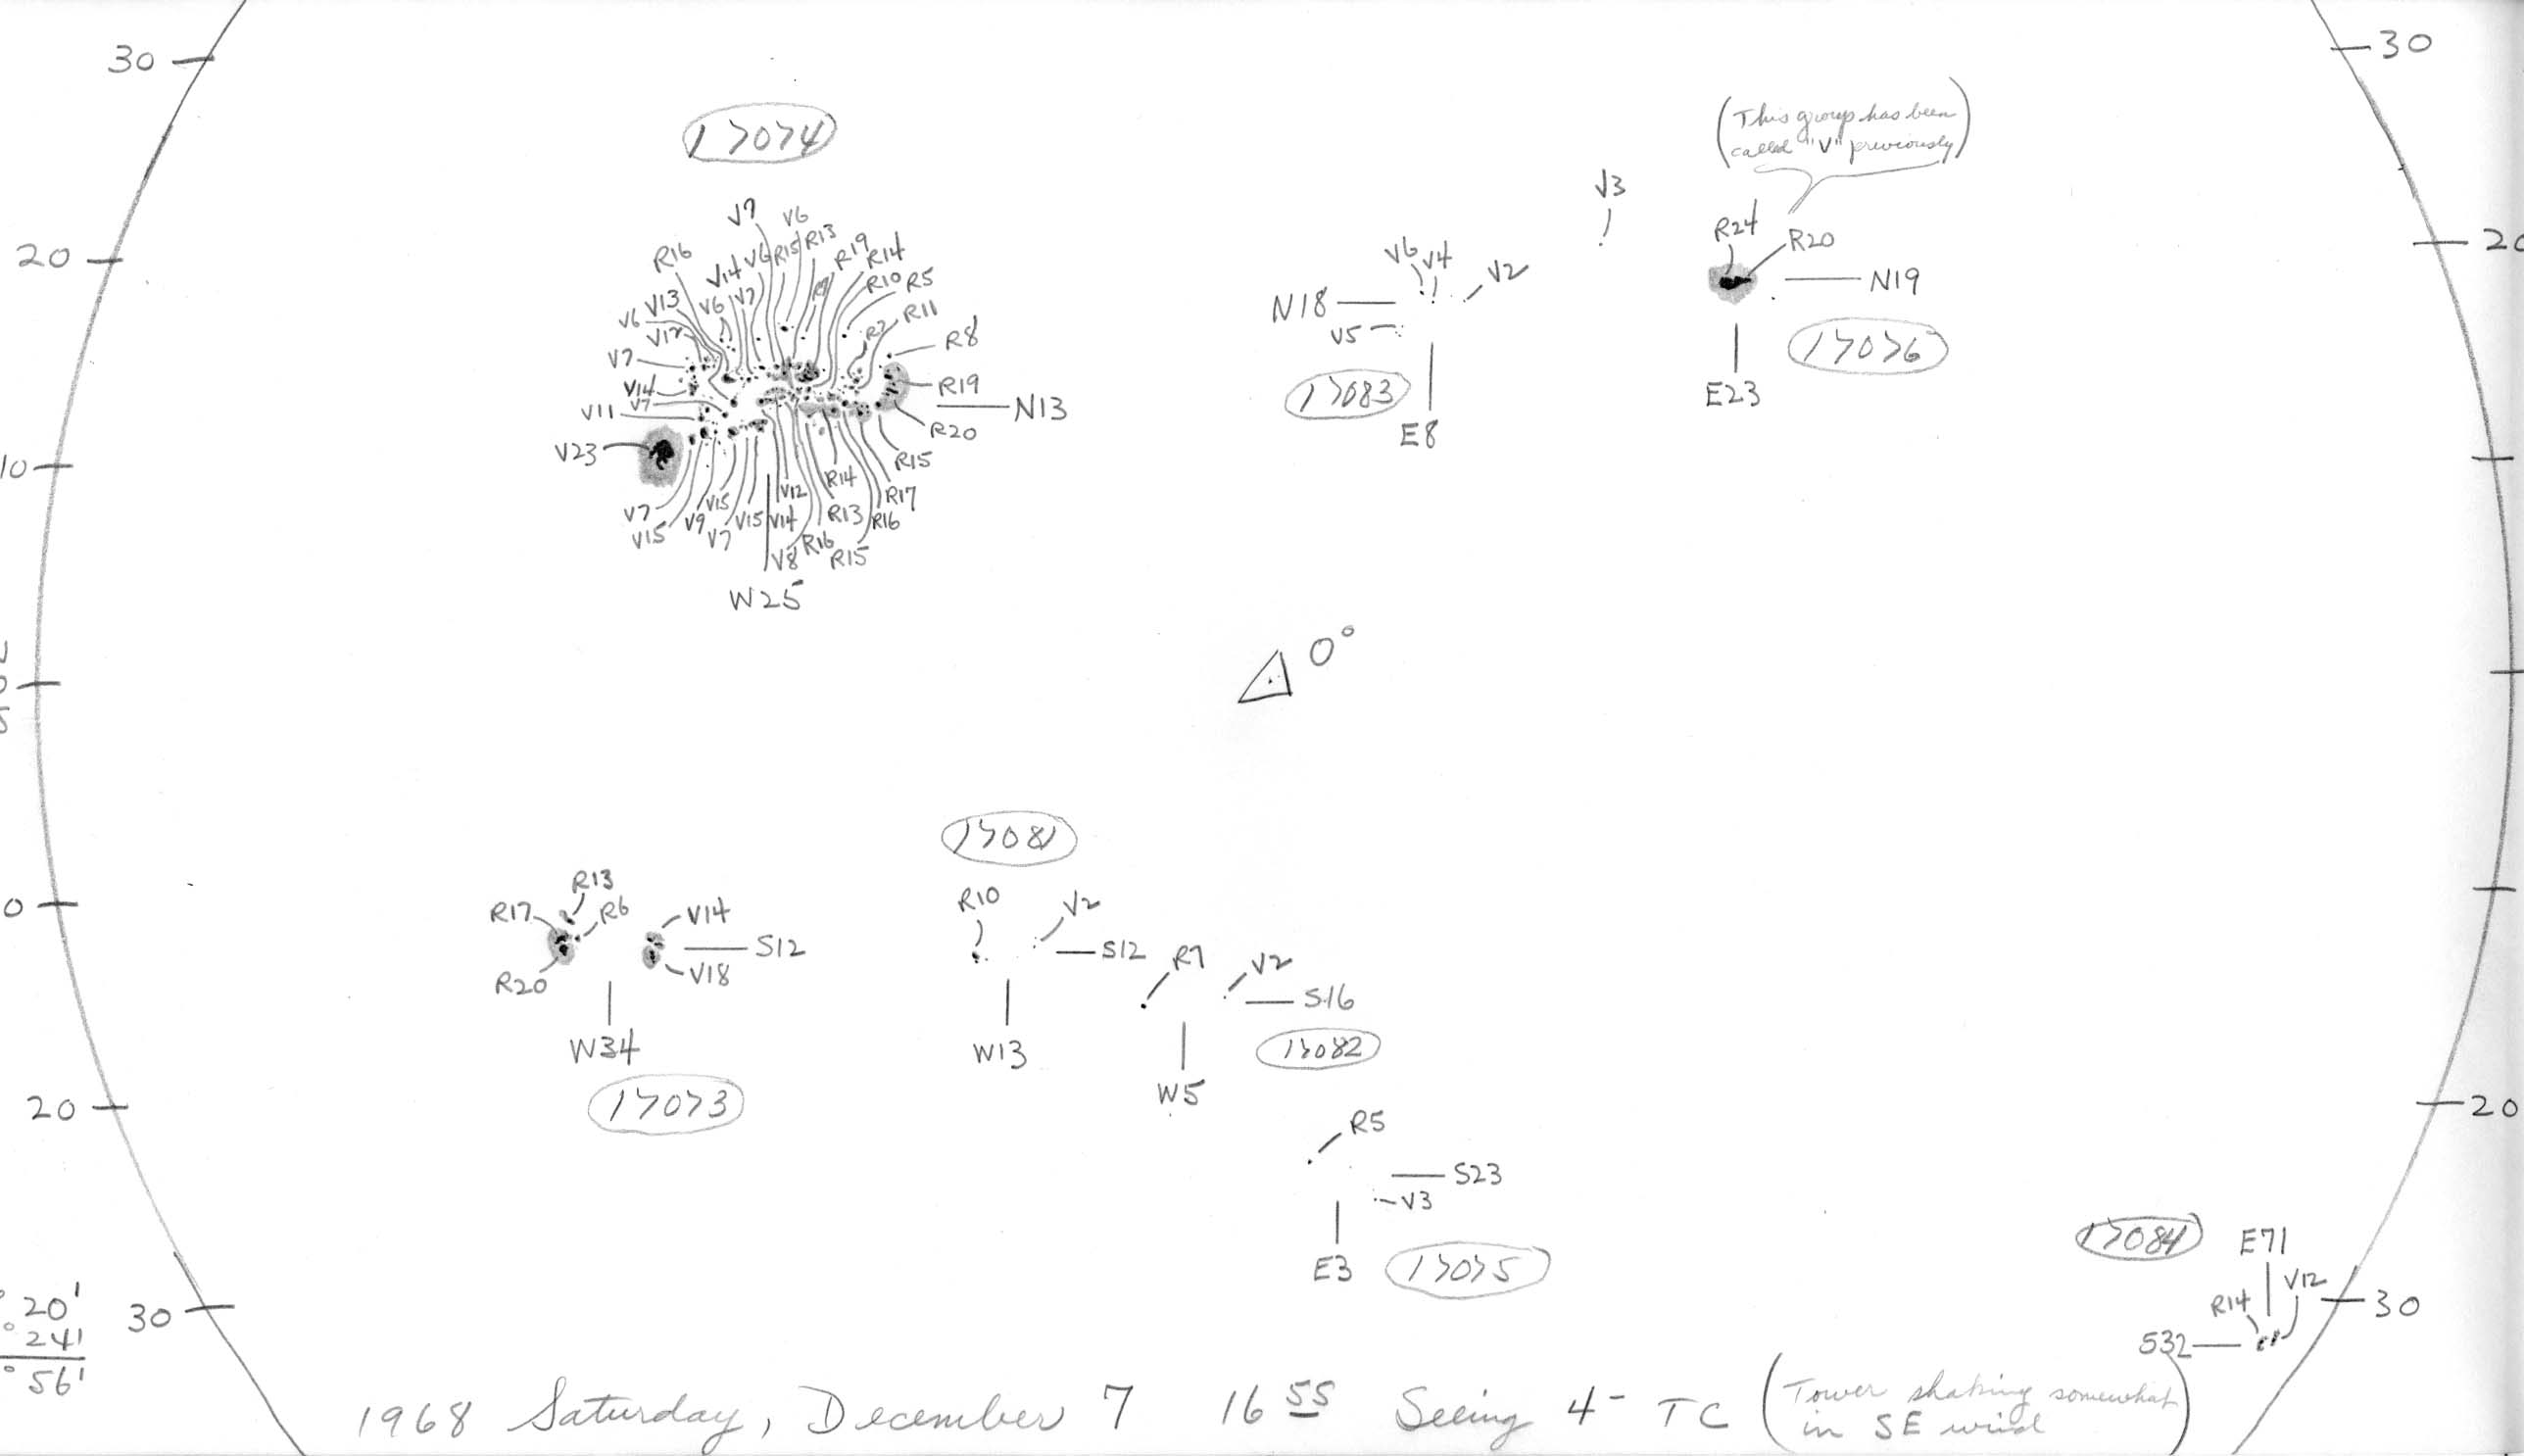 30
30
17074
(This group has been
called "V" previously)
V3
V7
V6
R13
R15
R16
V14
V6
R19
R14
R24
R20
20
20
V6
V4
V2
R10
R5
N18
N19
V13
V6
V7
V6
V17
R11
R2
V5
17076
R8
V7
17083
R19
V14
V7
V11
N13
E23
E8
R20
V23
R15
10
V12
R14
R17
V7
V15
V9
V15
V7
V15
V14
R13
R16
V8
R16
R15
W25
0°
17081
R13
R10
V2
R17
R6
V14
0
S12
S12
R7
V2
V18
R20
S16
W34
W13
17082
W5
17073
20
20
R5
S23
V3
17084
E71
E3
17075
V12
20'
30
R14
30
241
S32
56'
1968 Saturday, December 7 16 55 Seeing 4- TC (Tower shaking somewhat
in SE wind)